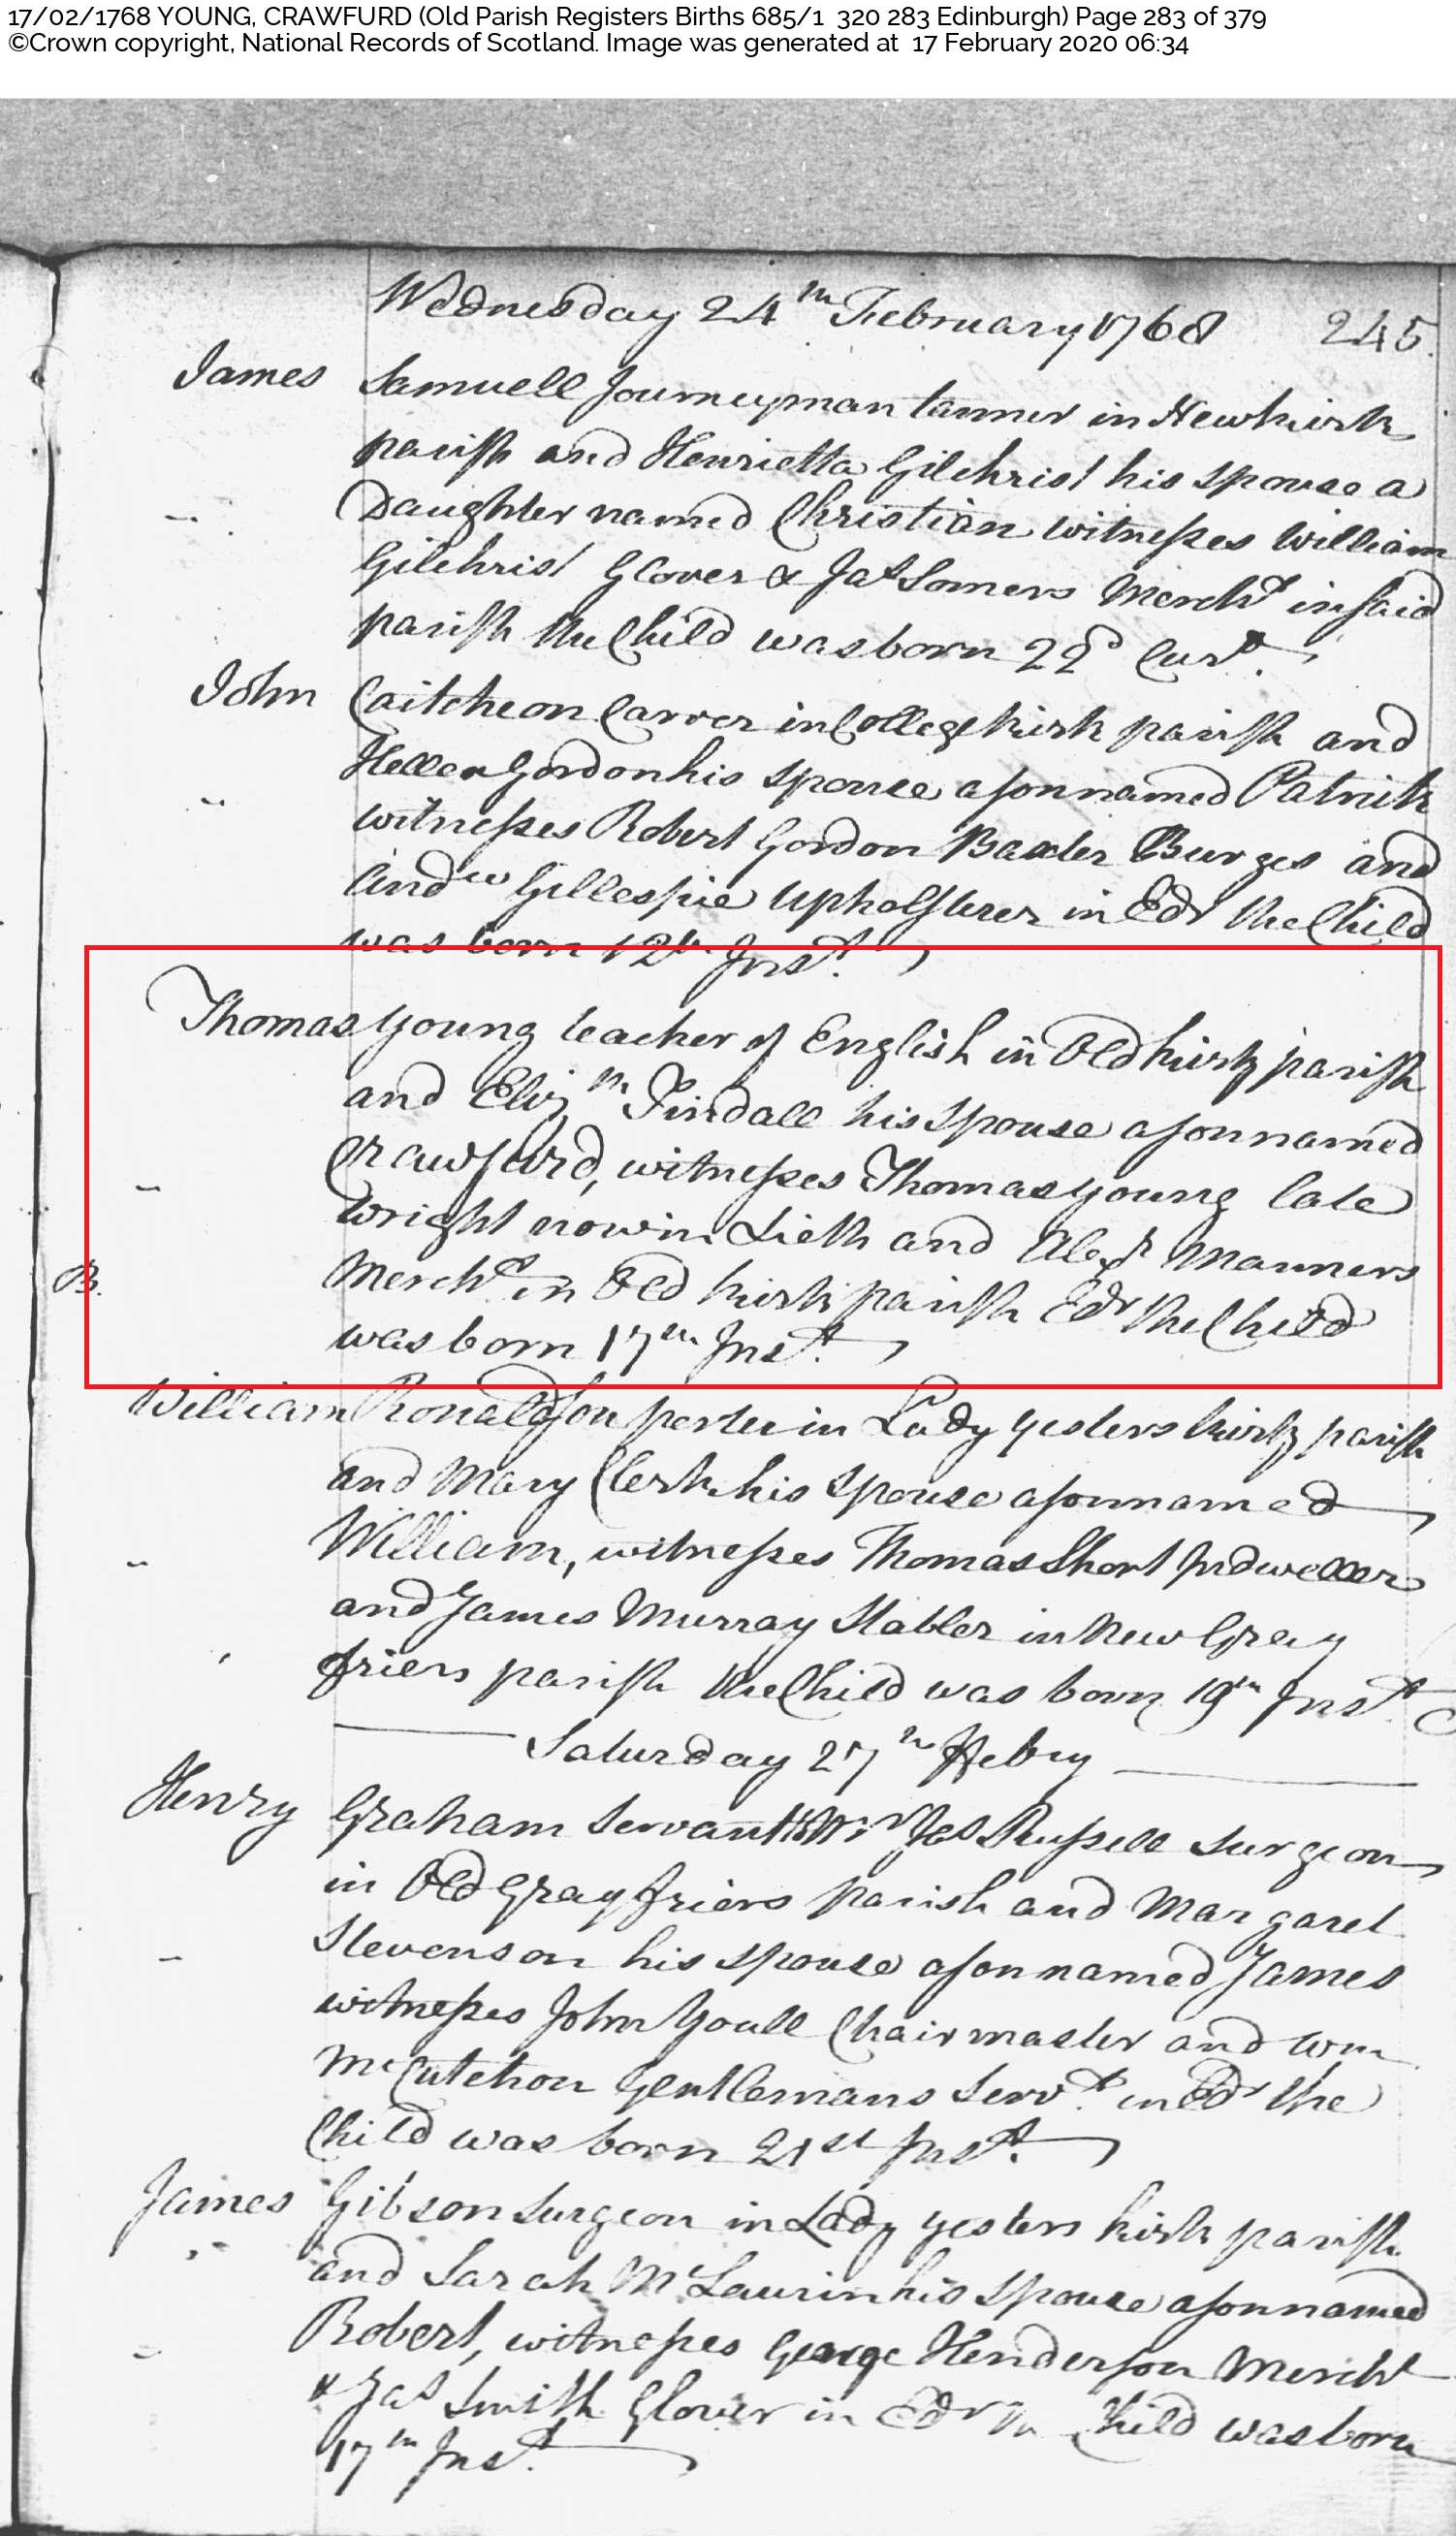 17/02/1768 YOUNG, CRAWFURD (Old Parish Registers Births 685/1 320 283 Edinburgh) Page 283 of 379
©Crown copyright, National Records of Scotland. Image was generated at 17 February 2020 06:34
Wednesday 24th February 1768 245.
James Samuell Journeyman tanner in Newkirk
parish and Henrietta Gilchrist his spouse a
Daughter named Christian witnesses William
Gilchrist Glover & Jas Somers Mercht in said
parish the Child was born 22d Curt.
John Caitcheon Carver in College kirk parish and
Hellen Gordon his spouse a son named Patrick
witnesses Robert Gordon Baxter Burges and
Andw Gillespie Upholsterer in Edr the Child
was born 12th Inst.
Thomas Young teacher of English in Old kirk parish
and Eliz:th Tindall his Spouse a son named
Crawfurd, witnesses Thomas young late
wright now in Lieth and Alexr Manners
Mercht. in Old kirk parish Edr the Child
B.
was born 17th Inst.
William Ronaldson porter in Lady Yesters kirk parish
and Mary Clerk his Spouse a son named
William, witnesses Thomas Short Indweller
and James Murray Stabler in New Gray
friers parish the Child was born 19th Inst.
Saturday 27th Febry
Henry Graham Servant to Mr Jas Russell Surgeon
in Old Gray friers parish and Margaret
Stevenson his spouse a son named James
witnesses John Youll Chairmaster and Wm
McCutcheon Gentlemans Servt. in Edr the
Child was born 21st Inst.
James Gibson Surgeon in Lady Yesters kirk parish
and Sarah McLaurin his Spouse a son named
Robert, witnesses George Henderson Mercht
& Jas Smith Glover in Edr the Child was born
17th Inst.